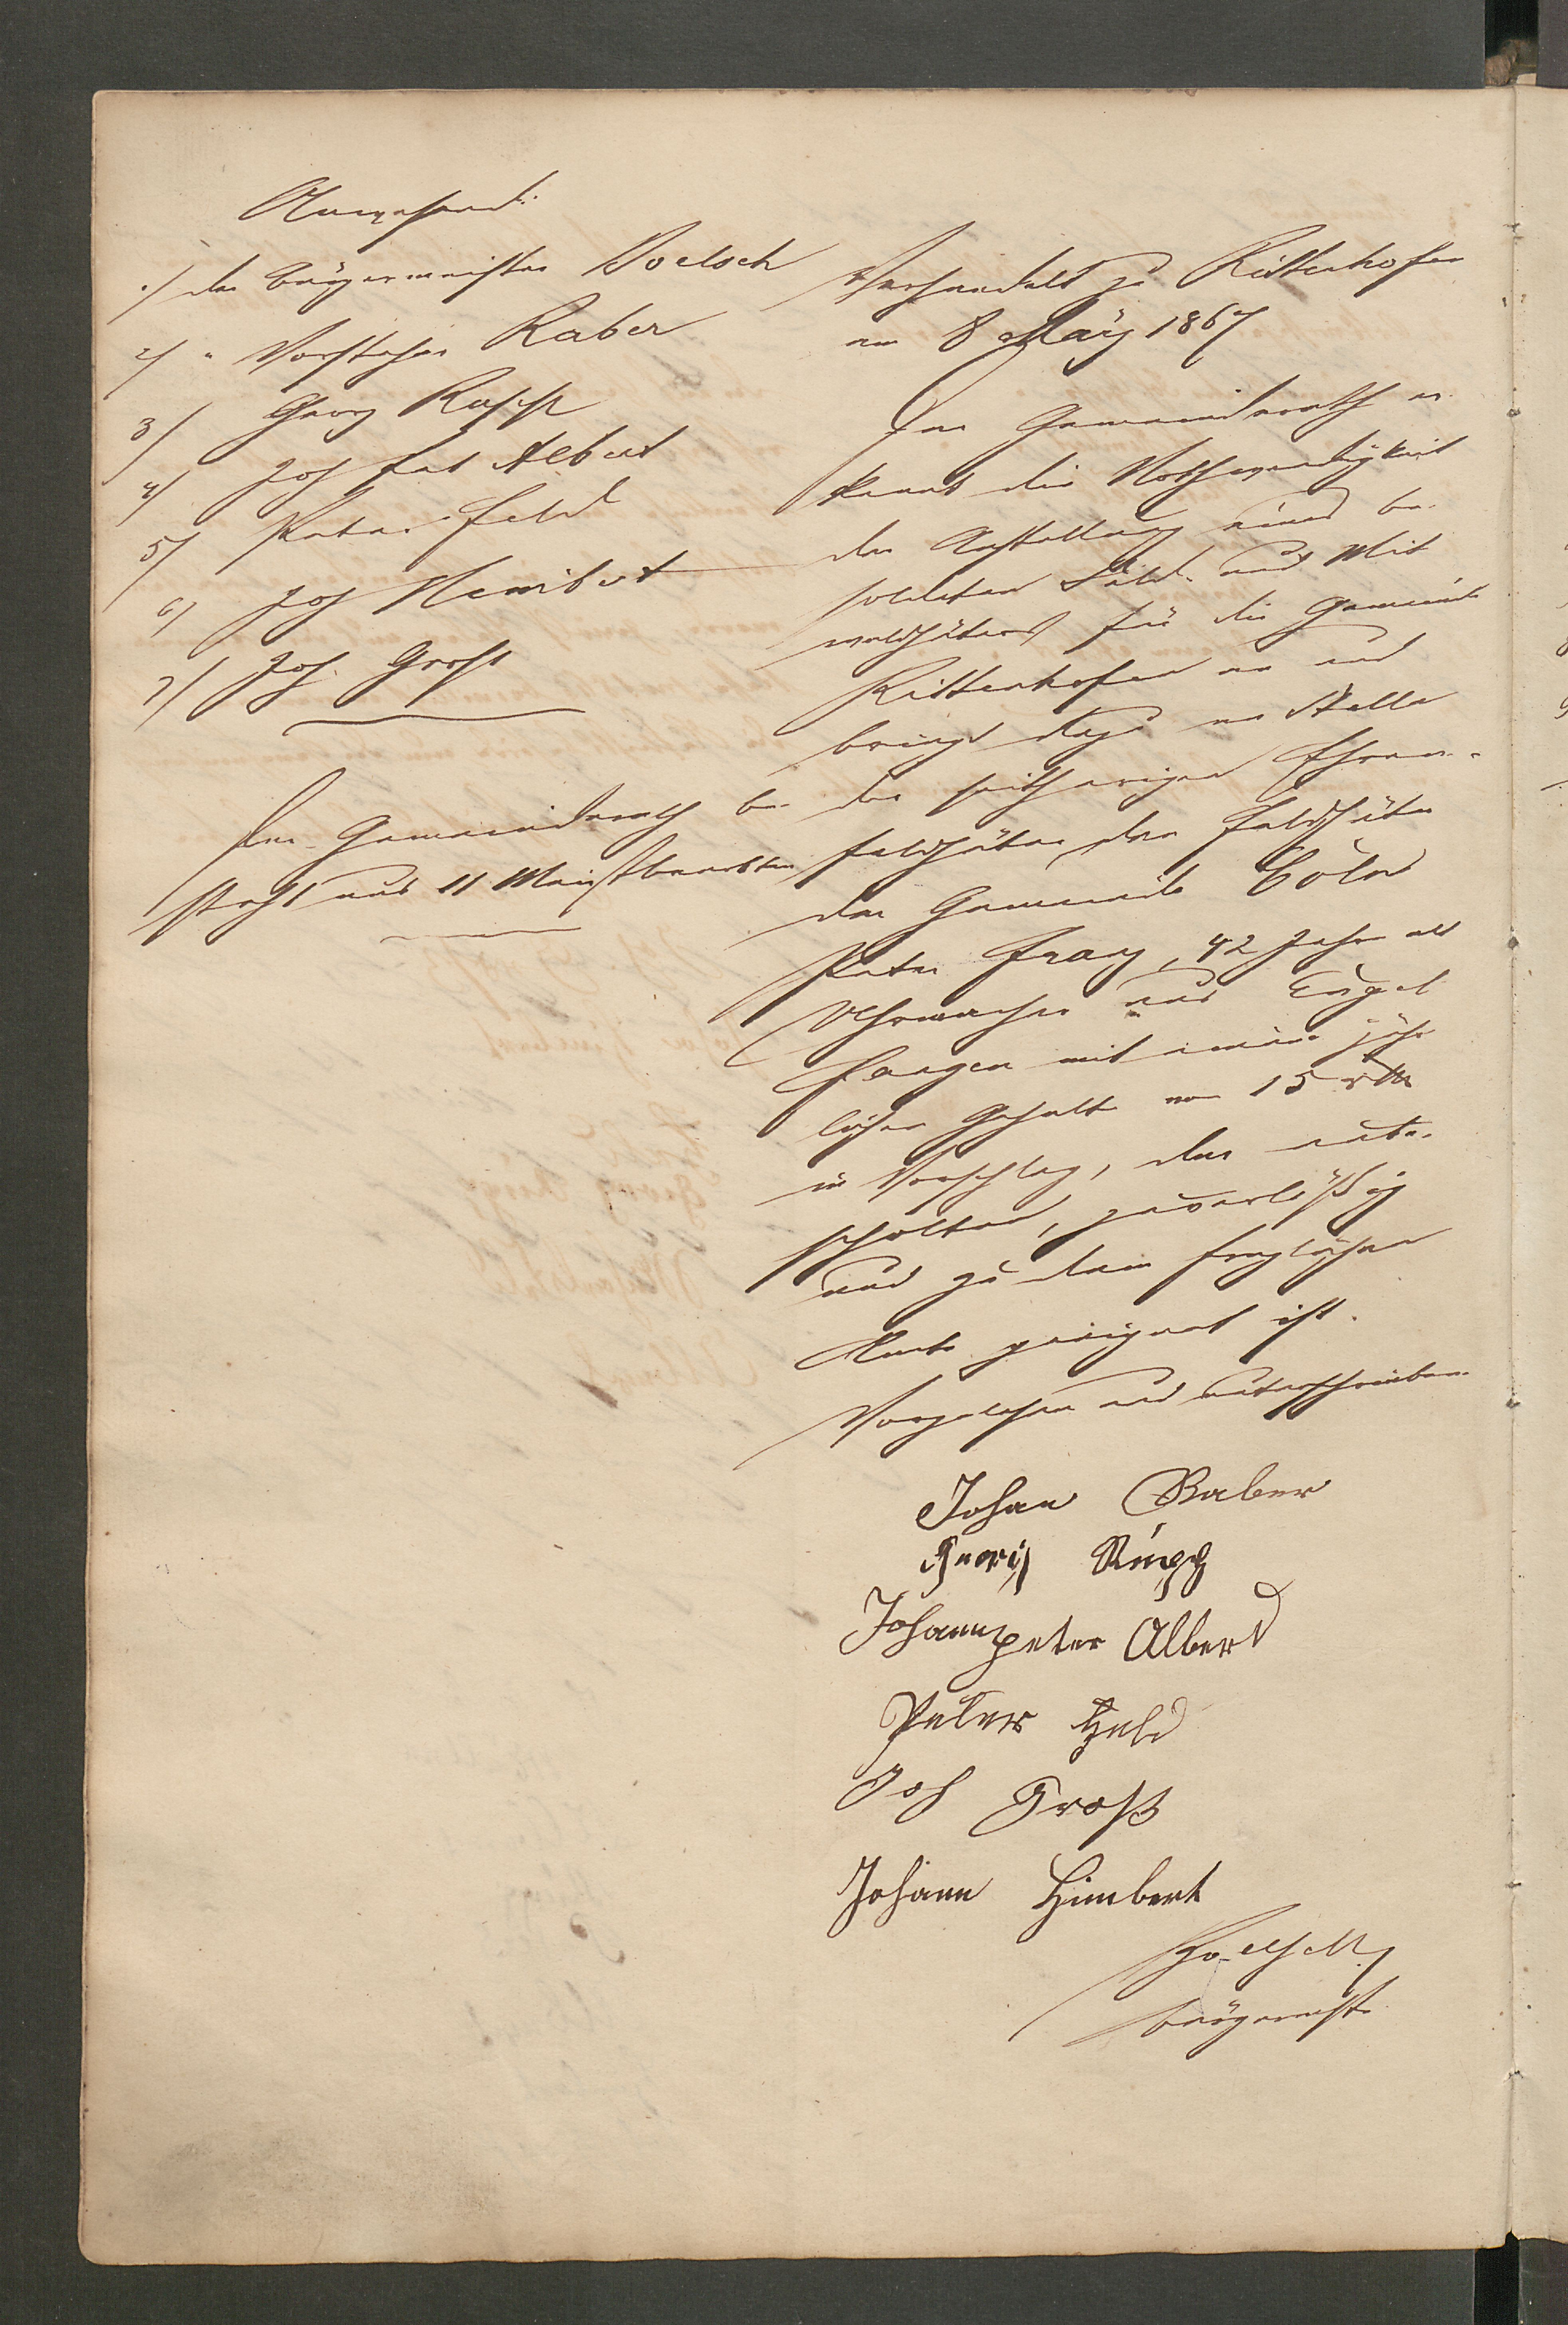 Anwesend:
1/ der Bürgermeister Voelsch
2/ " Vorsteher Raber
3/ Georg Rupp
4/ Joh Pet Albert
5/ Peter Held
6/ Joh Heimbert
7/ Joh. Groß
Der Gemeinderath be-
steht aus 11 Meistbeerbten
Verhandelt zu Rittenhofen
am 8 März 1867
Der Gemeinderath er-
kennt die Nothwendigkeit
der Anstellung eines be-
soldeten Feld- und Mit
waldhüters für die Gemeinde
Rittenhofen an und
bringt dazu an Stelle
der seitherigen Ehren-
feldhüter den Feldhüter
der Gemeinde Cöln
Peter Franz, 42 Jahre alt
Uhrmacher aus Engel
fangen mit einem jähr
lichen Gehalte von 15 rth
in Vorschlag, der unbe-
scholten, zuverlässig
und zu dem fraglichen
Amte geeignet ist.
Vorgelesen und unterschrieben.
Johan Raber
Georg Rupp
Johannpeter Albert
Peter Held
Joh Groß
Johann Himbert
Voelsch
Bürgermstr